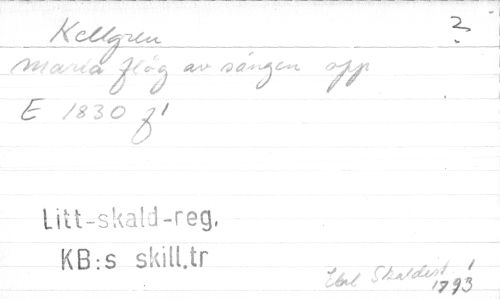 Kellgren ?
Maria flög av sängen opp
E 1830 f1
Litt-skald-reg.
KB:s skill.tr
Skaldest 1
1793